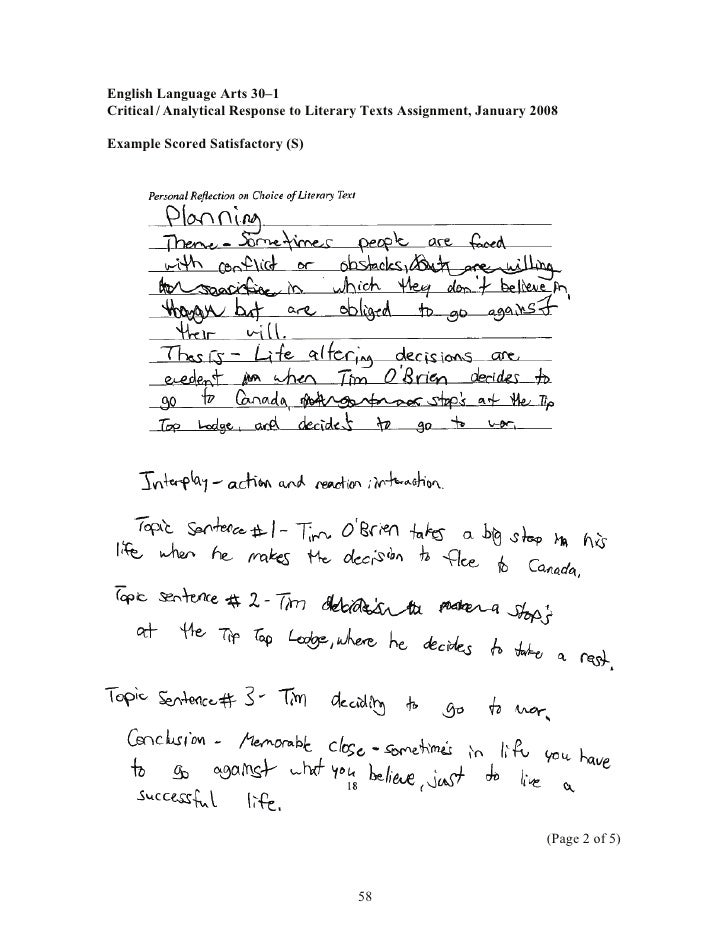 English Language Arts 30–1
Critical / Analytical Response to Literary Texts Assignment, January 2008
Example Scored Satisfactory (S)
Personal Reflection on Choice of Literary Text
Planning
Theme - Sometimes people are faced
with conflict or obstacles, but are willing
to sacrifice in which they don't believe in,
but are obliged to go against
their will.
Thesis - Life altering decisions are
evedent when Tim O'Brien decides to
go to Canada, stop's at the Tip
Top Lodge, and decide's to go to war.
Interplay - action and reaction; interaction.
Topic Sentence #1 - Tim O'Brien takes a big step in his
life when he makes the decision to flee to Canada,
Topic sentence # 2 - Tim stop's
at the Tip Top Lodge, where he decides to take a rest.
Topic Sentence # 3 - Tim deciding to go to war.
Conclusion - Memorable close - sometimes in life you have
to go against what you believe, just to live a
18
successful life.
(Page 2 of 5)
58